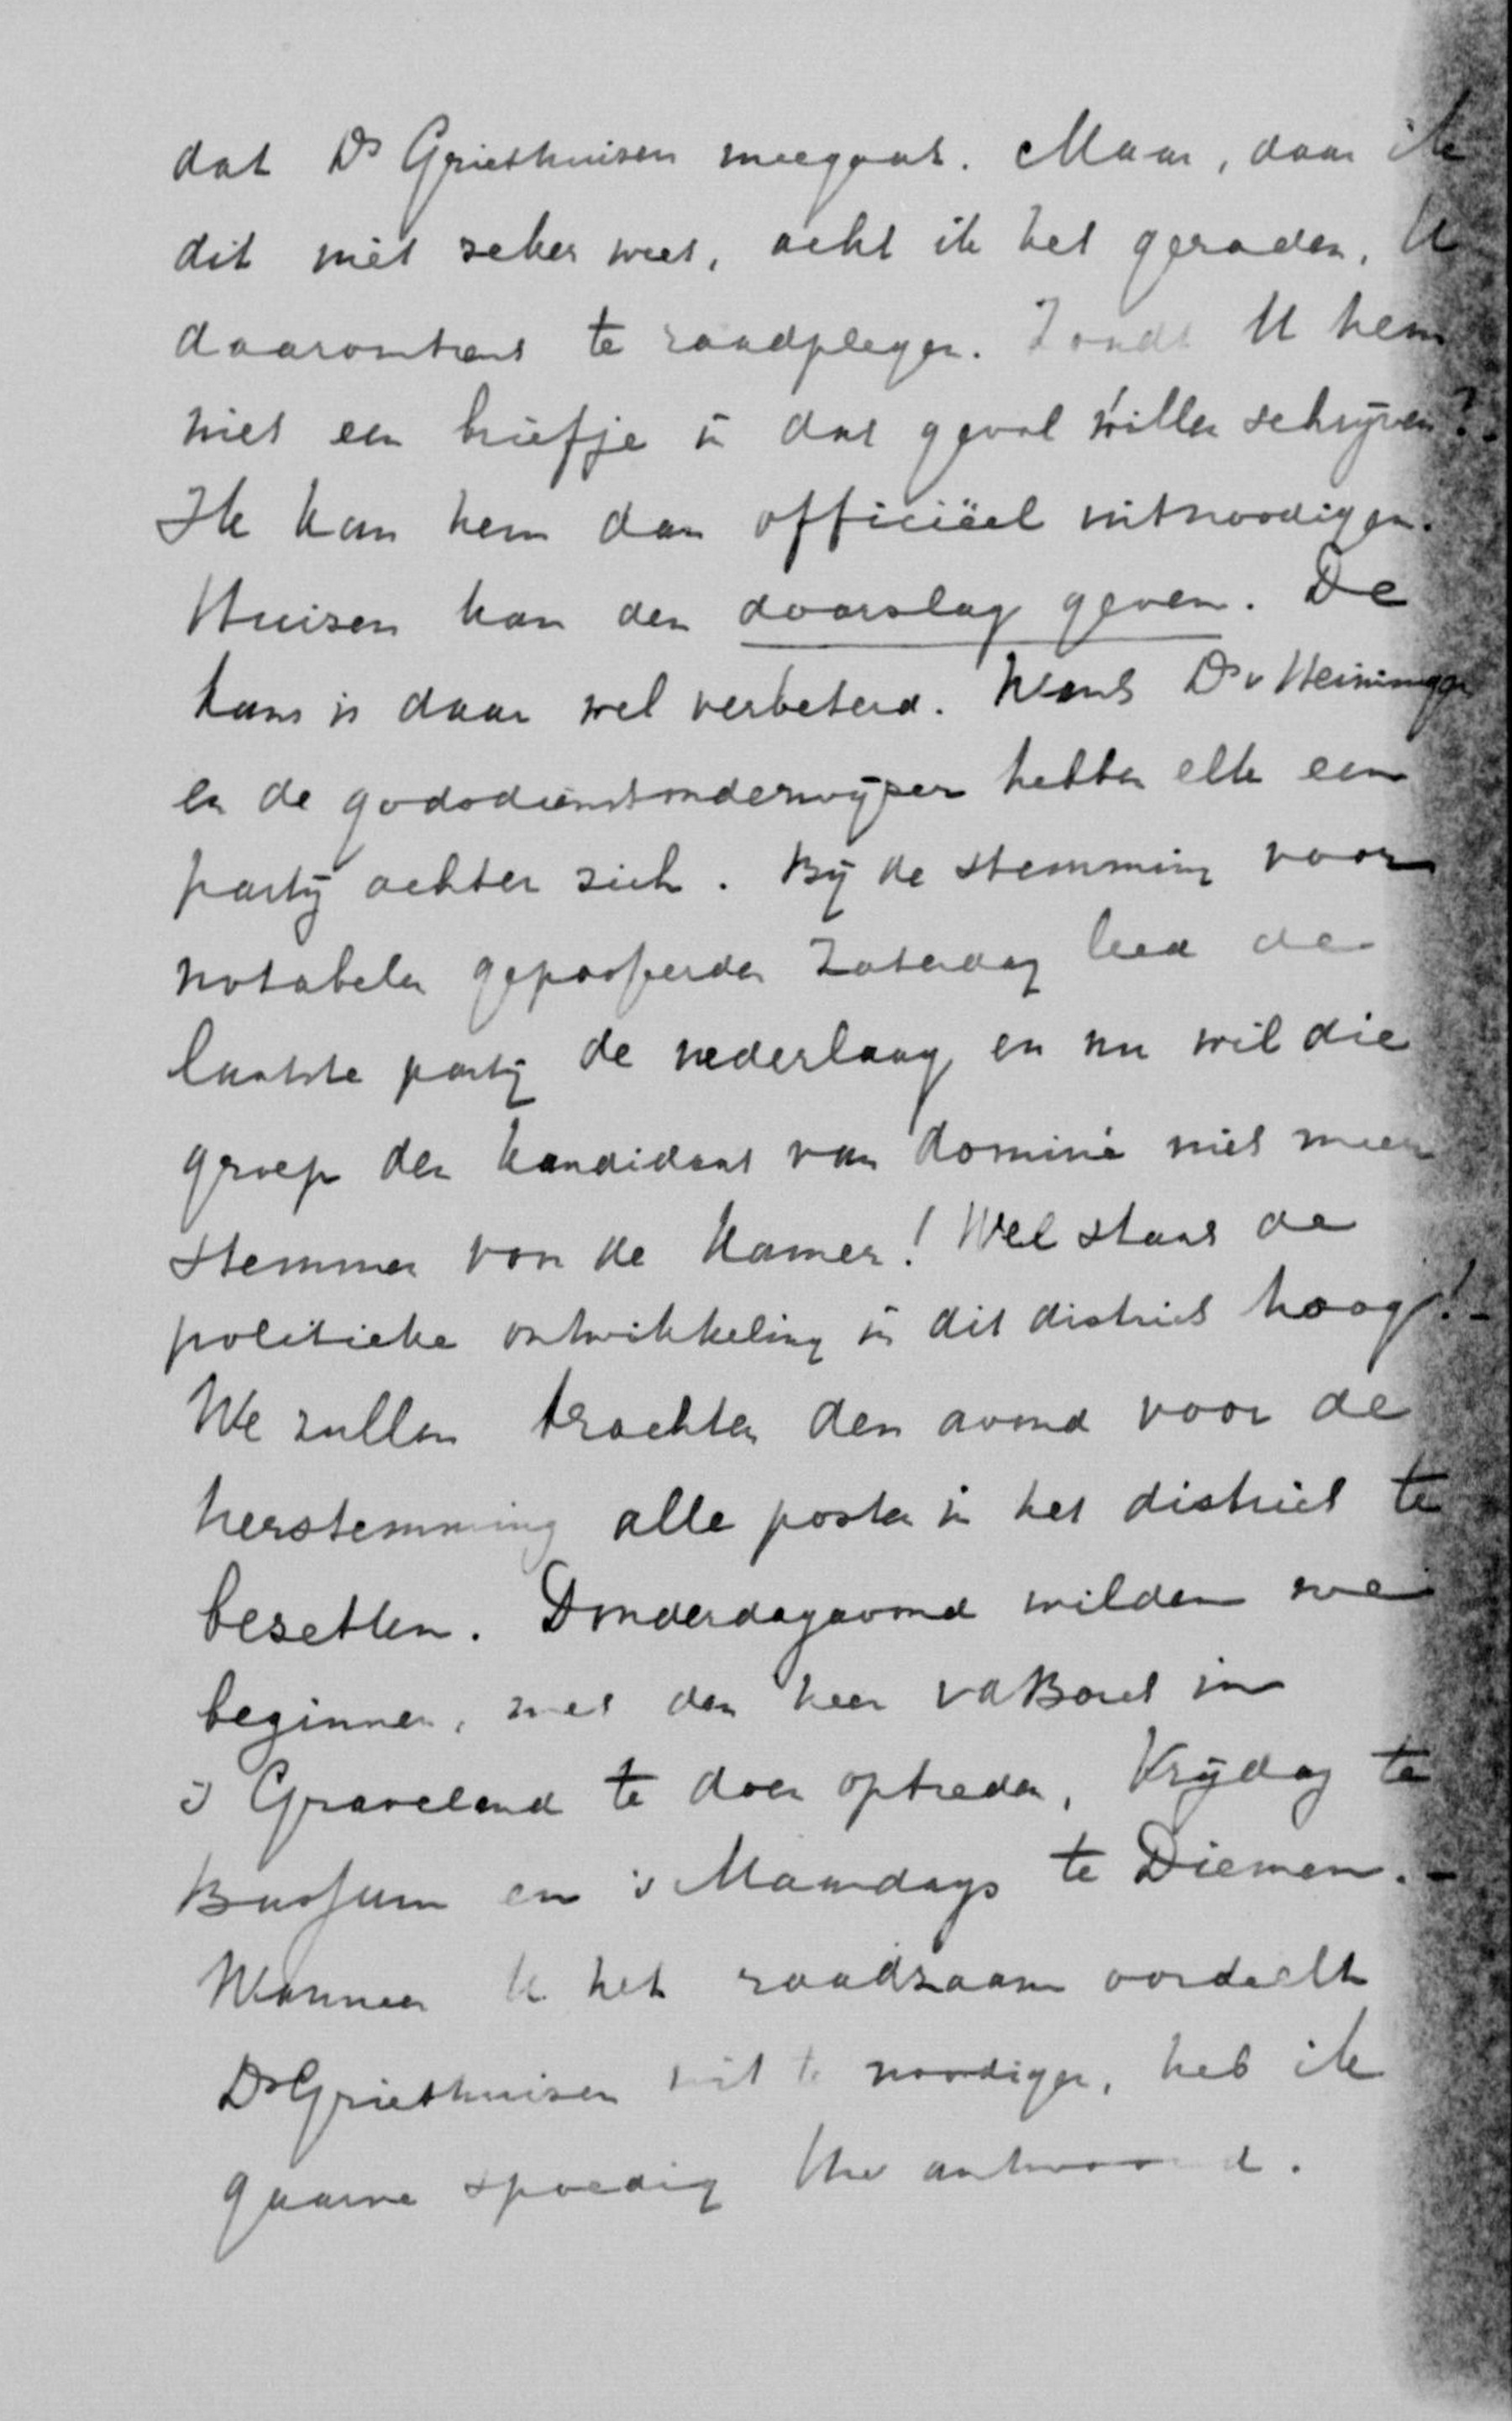 dat Ds Griethuisen meegaat. Maar, daar ik
dit niet zeker weet, acht ik het geraden, U
daaromtrent te raadplegen. Zoudt U hem
niet een briefje in dat geval willen schrijven?
Ik kan hem dan officiëel uitnoodigen.
Huizen kan den doorslag geven. De
kans is daar wel verbeterd. Want Ds v Heiningen
en de godsdienstonderwijzer hebben elk een
partij achter zich. Bij de stemming voor
notabelen gepasseerden Zaterdag leed de
laatste partij de nederlaag en nu wil die
groep den kandidaat van dominé niet meer
stemmen voor de Kamer! Wel staat de
politieke ontwikkeling in dit district hoog!-
We zullen trachten den avond voor de
herstemming alle posten in het district te
bezetten. Donderdagavond wilden we
beginnen, met den heer vd Borch in
's Graveland te doen optreden, Vrijdag te
Bussum en 's Maandags te Diemen.-
Wanneer U het raadzaam oordeelt
Ds Griethuisen uit te noodigen, heb ik
gaarne spoedig Uw antwoord.